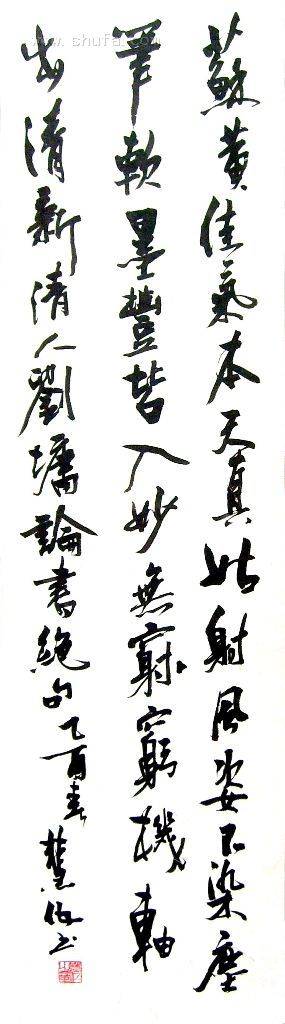 蘇黄佳氣本天真姑射風姿不染塵
筆軟墨豐皆入妙無窮窮機軸
出清新清人劉墉論書絕句乙酉春